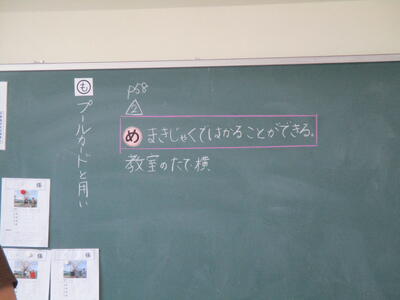 p58
2
め まきじゃくではかることができる。
教室のたて横
も プールカードと用い